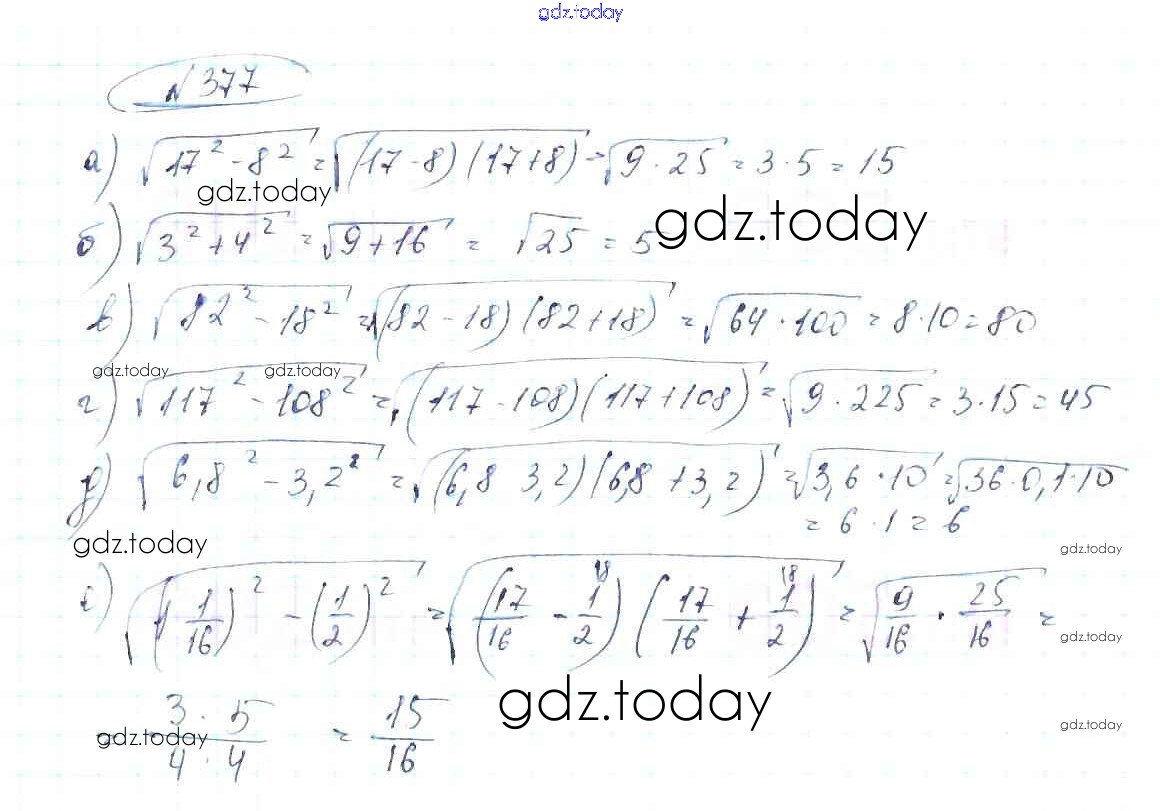 gdz.today
№ 377
а) √(17² - 8²) = √((17-8)(17+8)) = √(9·25) = 3·5 = 15
gdz.today
gdz.today
б) √(3² + 4²) = √(9+16) = √25 = 5
в) √(82² - 18²) = √((82-18)(82+18)) = √(64·100) = 8·10 = 80
gdz.today gdz.today
г) √(117² - 108²) = √((117-108)(117+108)) = √(9·225) = 3·15 = 45
д) √(6,8² - 3,2²) = √((6,8 3,2)(6,8+3,2)) = √(3,6·10) = √(36·0,1·10)
= 6·1 = 6
gdz.today
gdz.today
е) √((1 1/16)² - (1/2)²) = √((17/16 - 1/2)(17/16 + 1/2)) = √(9/16 · 25/16) =
gdz.today
gdz.today
gdz.today
gdz.today
= 3·5/4·4 = 15/16